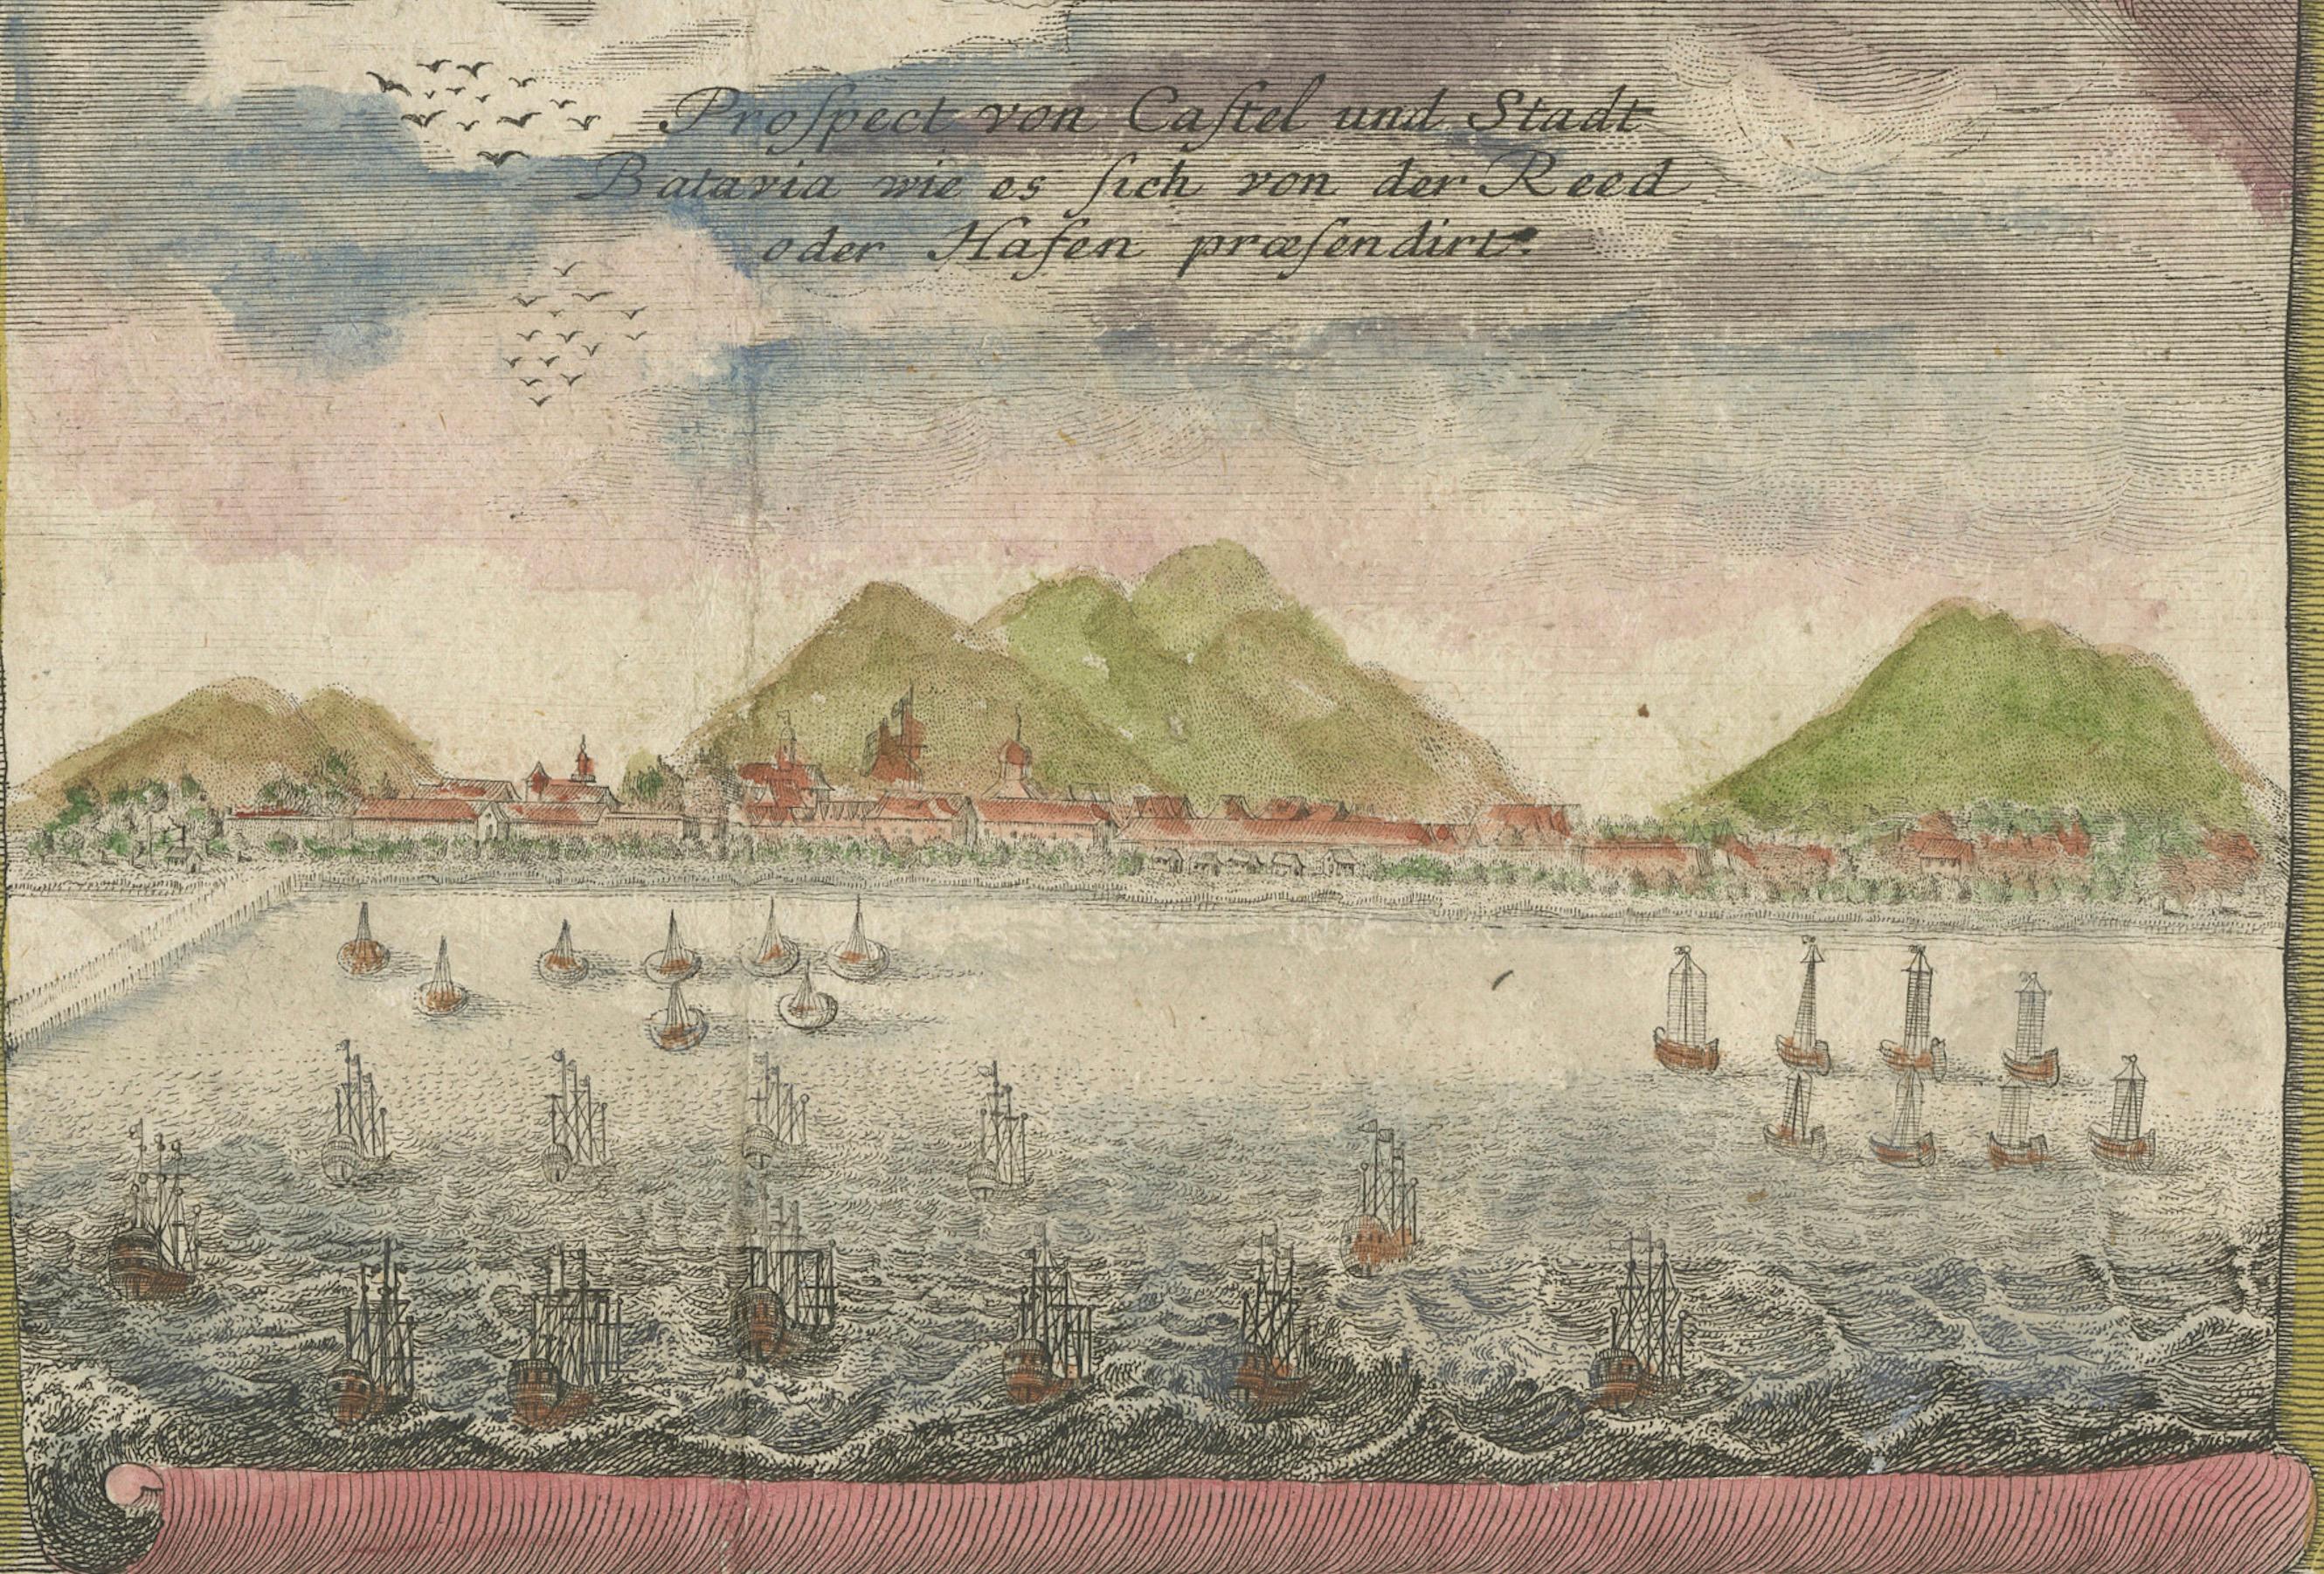 Proſpect von Caſtel und Stadt
Batavia wie es ſich von der Reed
oder Hafen præſendirt.